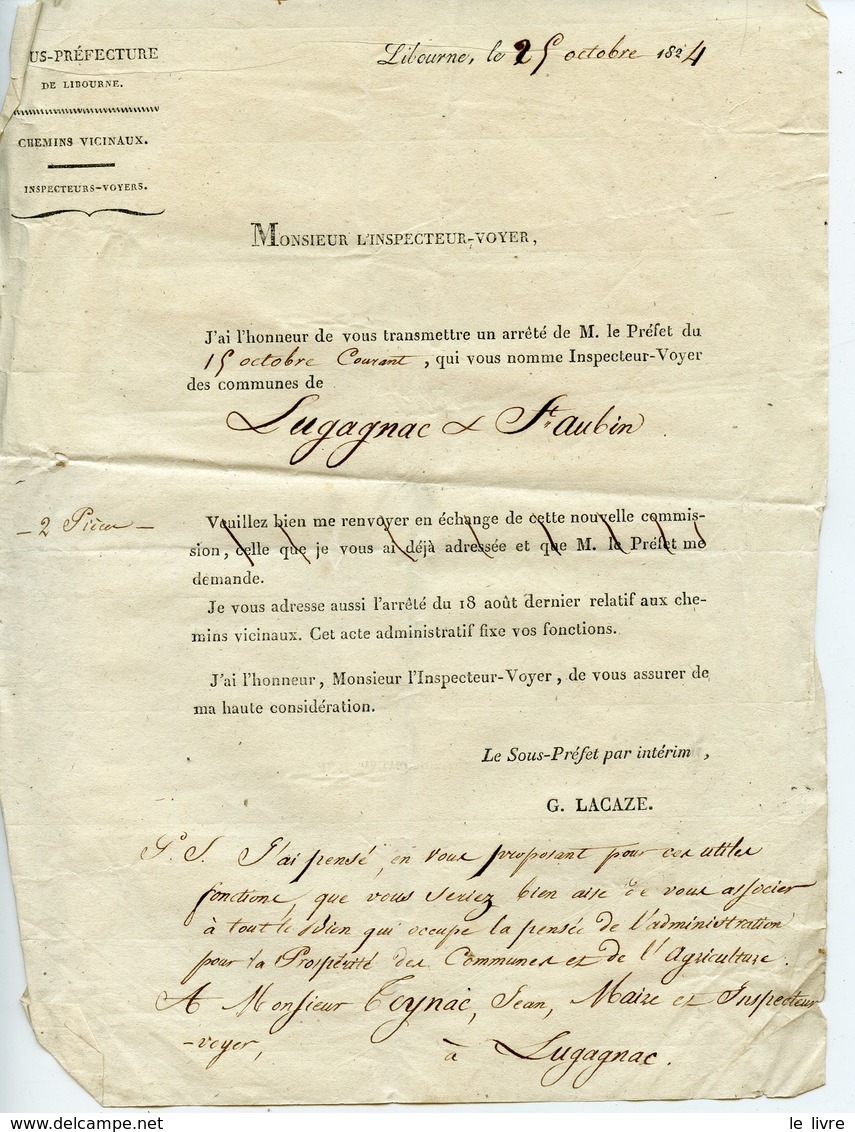 US-PRÉFECTURE
DE LIBOURNE.
CHEMINS VICINAUX.
INSPECTEURS-VOYERS.
Libourne, le 25 octobre 1824
MONSIEUR L'INSPECTEUR-VOYER,
J'ai l'honneur de vous transmettre un arrêté de M. le Préfet du
15 octobre Courant, qui vous nomme Inspecteur-Voyer
des communes de
Lugagnac & St. aubin
- 2 Pièces -
Veuillez bien me renvoyer en échange de cette nouvelle commis-
sion, celle que je vous ai déjà adressée et que M. le Préfet me
demande.
Je vous adresse aussi l'arrêté du 18 août dernier relatif aux che-
mins vicinaux. Cet acte administratif fixe vos fonctions.
J'ai l'honneur, Monsieur l'Inspecteur-Voyer, de vous assurer de
ma haute considération.
Le Sous-Préfet par intérim,
G. LACAZE.
P. S. J'ai pensé, en vous proposant pour ces utiles
fonctions, que vous seriez bien aise de vous associer
à tout le bien qui occupe la pensée de l'administration
pour la Prospérité des Communes et de l'Agriculture.
A Monsieur Teynac, Jean, Maire et Inspecteur
-voyer,
à Lugagnac.
le livre